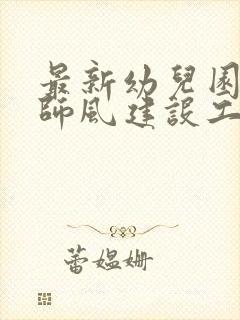 最新幼兒園
師風建設工
蕾媼姍